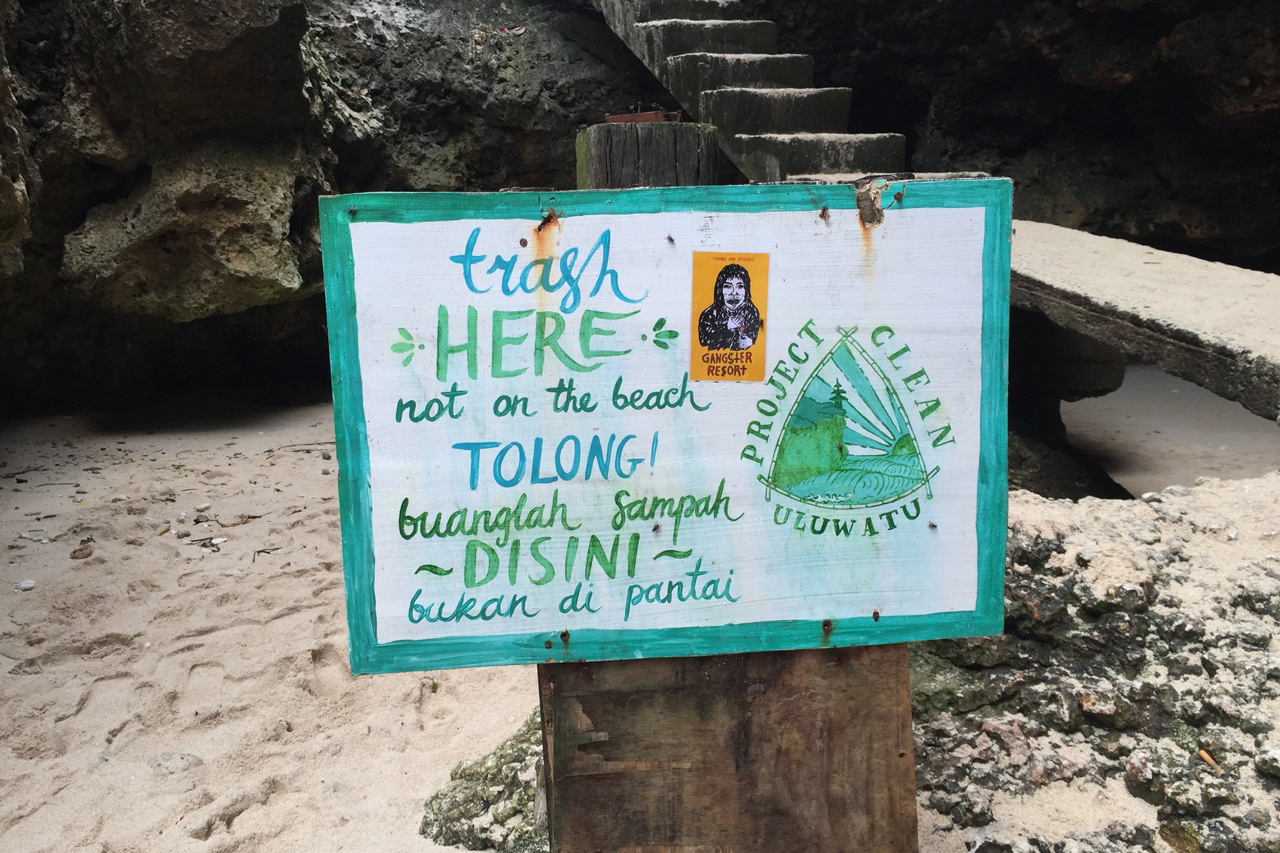 trash
HERE
not on the beach
TOLONG!
buanglah Sampah
~DISINI~
bukan di pantai
GANGSTER
RESORT
PROJECT CLEAN
ULUWATU